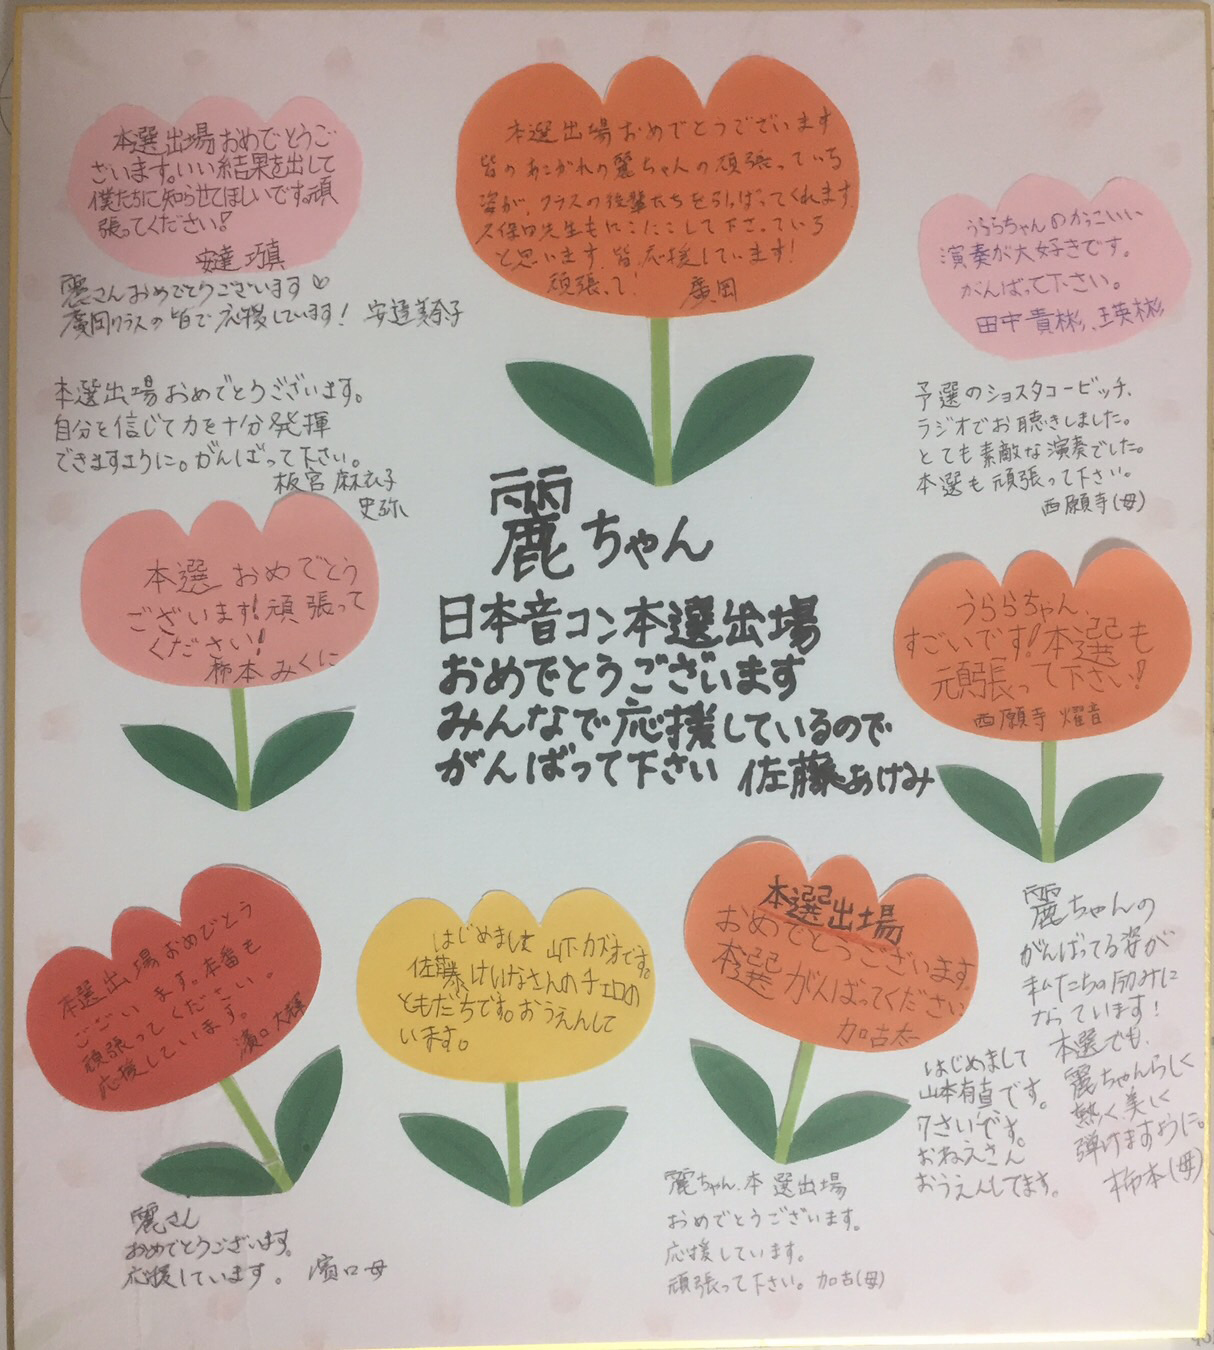 本選出場おめでとうご
ざいます。いい結果を出して
僕たちに知らせてほしいです。頑
張ってください!
安達 巧真
麗さんおめでとうございます♡
廣岡クラスの皆で応援しています! 安達美奈子
本選出場おめでとうございます
皆のあこがれの麗ちゃんの頑張っている
姿が、クラスの後輩たちを引っぱってくれます
久保田先生もにこにこして下さっている
と思います。皆応援しています!
頑張って! 廣岡
うららちゃんのかっこいい
演奏が大好きです。
がんばって下さい。
田中貴彬、瑛彬
本選出場おめでとうございます。
自分を信じて力を十分発揮
できますように。がんばって下さい。
板宮 麻衣子
史弥
予選のショスタコービッチ、
ラジオでお聴きしました。
とても素敵な演奏でした。
本選も頑張って下さい。
西願寺(母)
麗ちゃん
日本音コン本選出場
おめでとうございます
みんなで応援しているので
がんばって下さい 佐藤あけみ
本選 おめでとう
ございます!頑張って
ください!
柿本 みくに
うららちゃん、
すごいです!本選も
頑張って下さい!
西願寺 燿音
本選出場おめでとう
ございます。本番も
頑張ってください。
応援しています。
濱口大輝
麗さん
おめでとうございます。
応援しています。 濱口母
はじめまして 山下カズオです。
佐藤けいなさんのチェロの
ともだちです。おうえんして
います。
本選出場
おめでとうございます
本選がんばってください
加古太一
麗ちゃん、本選出場
おめでとうございます。
応援しています。
頑張って下さい。加古(母)
はじめまして
山本有直です。
7さいです。
おねえさん
おうえんしてます。
麗ちゃんの
がんばってる姿が
私たちの励みに
なっています!
本選でも、
麗ちゃんらしく
熱く、美しく
弾けますように。
柿本(母)